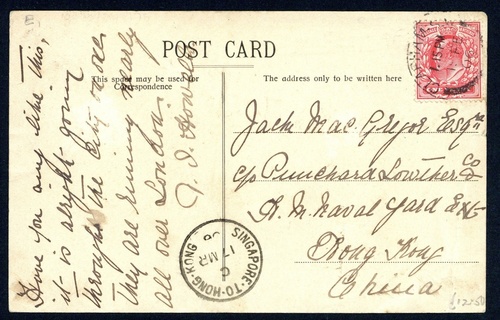 POST CARD
This space may be used for
Correspondence
The address only to be written here
Have you any like this,
it is alright going
through the City as
they are running nearly
all over London.
J. Howell
Jack Mac Gregor Esqre
c/o Punchard Lowther Co
H. M. Naval Yard Extn
Hong Kong
China
SINGAPORE-TO-HONG-KONG
C
17 MR
08